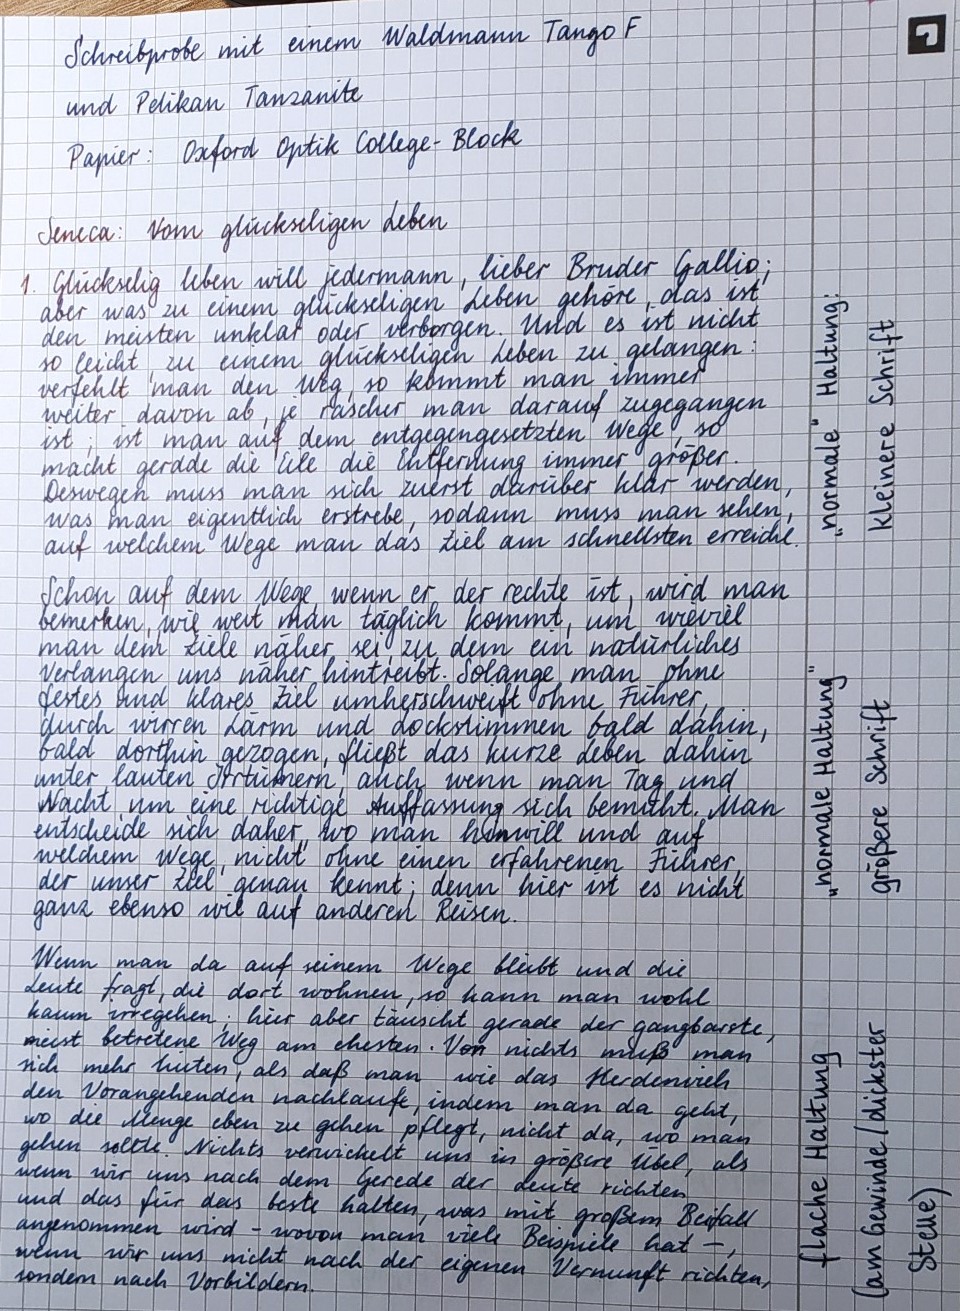 Schreibprobe mit einem Waldmann Tango F
und Pelikan Tanzanite
Papier: Oxford Optik College-Block
Seneca: Vom glückseligen Leben
1. Glückselig leben will jedermann, lieber Bruder Gallio;
aber was zu einem glückseligen Leben gehöre, das ist
den meisten unklar oder verborgen. Und es ist nicht
so leicht, zu einem glückseligen Leben zu gelangen:
verfehlt man den Weg, so kommt man immer
weiter davon ab, je rascher man darauf zugegangen
ist; ist man auf dem entgegengesetzten Wege, so
macht gerade die Eile die Entfernung immer größer.
Deswegen muss man sich zuerst darüber klar werden,
was man eigentlich erstrebe, sodann muss man sehen,
auf welchem Wege man das Ziel am schnellsten erreiche.
„normale" Haltung:
kleinere Schrift
Schon auf dem Wege wenn er der rechte ist, wird man
bemerken, wie weit man täglich kommt, um wieviel
man dem Ziele näher sei zu dem ein natürliches
Verlangen uns näher hintreibt. Solange man ohne
festes und klares Ziel umherschweift ohne Führer,
durch wirren Lärm und Lockstimmen bald dahin,
bald dorthin gezogen, fließt das kurze Leben dahin
unter lauten Irrtümern, auch wenn man Tag und
Nacht um eine richtige Auffassung sich bemüht. Man
entscheide sich daher, wo man hinwill und auf
welchem Wege, nicht ohne einen erfahrenen Führer,
der unser Ziel genau kennt; denn hier ist es nicht
ganz ebenso wie auf anderen Reisen.
„normale Haltung"
größere Schrift
Wenn man da auf seinem Wege bleibt und die
Leute fragt, die dort wohnen, so kann man wohl
kaum irregehen; hier aber täuscht gerade der gangbarste,
meist betretene Weg am ehesten. Von nichts muß man
sich mehr hüten, als daß man wie das Herdenvieh
den Vorangehenden nachlaufe, indem man da geht,
wo die Menge eben zu gehen pflegt, nicht da, wo man
gehen sollte. Nichts verwickelt uns in größere Übel, als
wenn wir uns nach dem Gerede der Leute richten
und das für das beste halten, was mit großem Beifall
angenommen wird – wovon man viele Beispiele hat –,
wenn wir uns nicht nach der eigenen Vernunft richten,
sondern nach Vorbildern.
flache Haltung
(am Gewinde/dickster
Stelle)